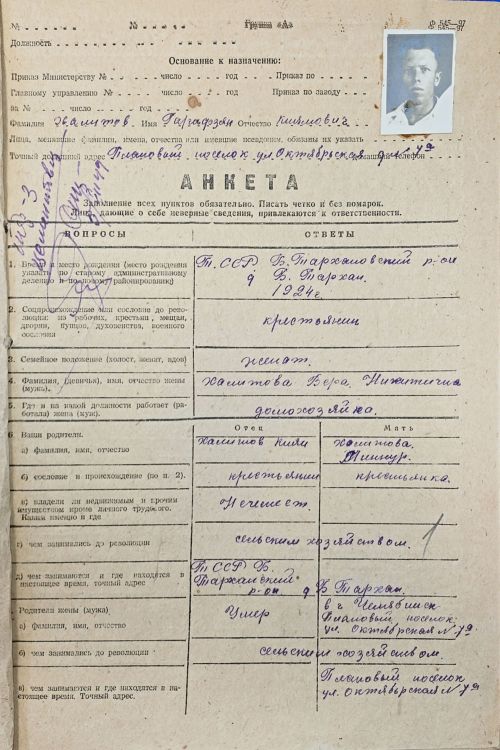 № № Группа «А» Ф 545—97
Должность
Основание к назначению:
Приказ Министерству № число год Приказ по
Главному управлению № число год Приказ по заводу
за № число год
Фамилия Халитов Имя Отчество
Лица, менявшие фамилия, имена, отчества или имевшие псевдоним, обязаны их указать
Точный домашний адрес Плановый поселок ул. Октябрьская д. № 7а Домашний телефон
АНКЕТА
Заполнение всех пунктов обязательно. Писать четко и без помарок.
Лица, дающие о себе неверные сведения, привлекаются к ответственности.
ВОПРОСЫ ОТВЕТЫ
1. Время и место рождения (место рождения указать по старому административному делению и по новому районированию)
Т. ССР Б. Тархановский р-он
д Б. Тархан.
1924 г.
2. Соцпроисхождение или сословие до революции из рабочих, крестьян, мещан, дворян, купцов, духовенства, военного сословия
крестьянин
3. Семейное положение (холост, женат, вдов)
женат.
4. Фамилия, (девичья), имя, отчество жены (мужа).
Халитова Вера Никитична
5. Где и на какой должности работает (работала) жена (муж).
домохозяйка.
6. Ваши родители.
Отец Мать
а) фамилия, имя, отчество
Халитов Халитова.
б) сословие и происхождение (по п. 2).
крестьянин крестьянка.
в) владели ли недвижимым и прочим имуществом кроме личного труджего. Каким именно и где
г) чем занимались до революции
сельским хозяйством.
1
д) чем занимаются и где находятся в настоящее время, точный адрес
Т ССР Б.
Тарханский
р-он д Б Тархан.
Родители жены (мужа)
а) фамилия, имя, отчество
Умер
в г Челябинск
Плановый поселок
ул. Октябрская № 7а
б) чем занимались до революции
сельским хозяйством.
в) чем занимаются и где находятся в настоящее время. Точный адрес.
Плановый поселок
ул. Октябрьская № 7а